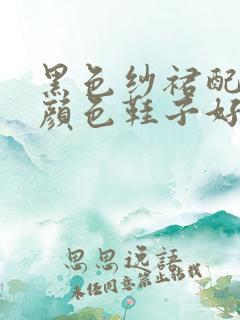 黑色纱裙配
颜色鞋子好
思思说語
未经同意禁止转载